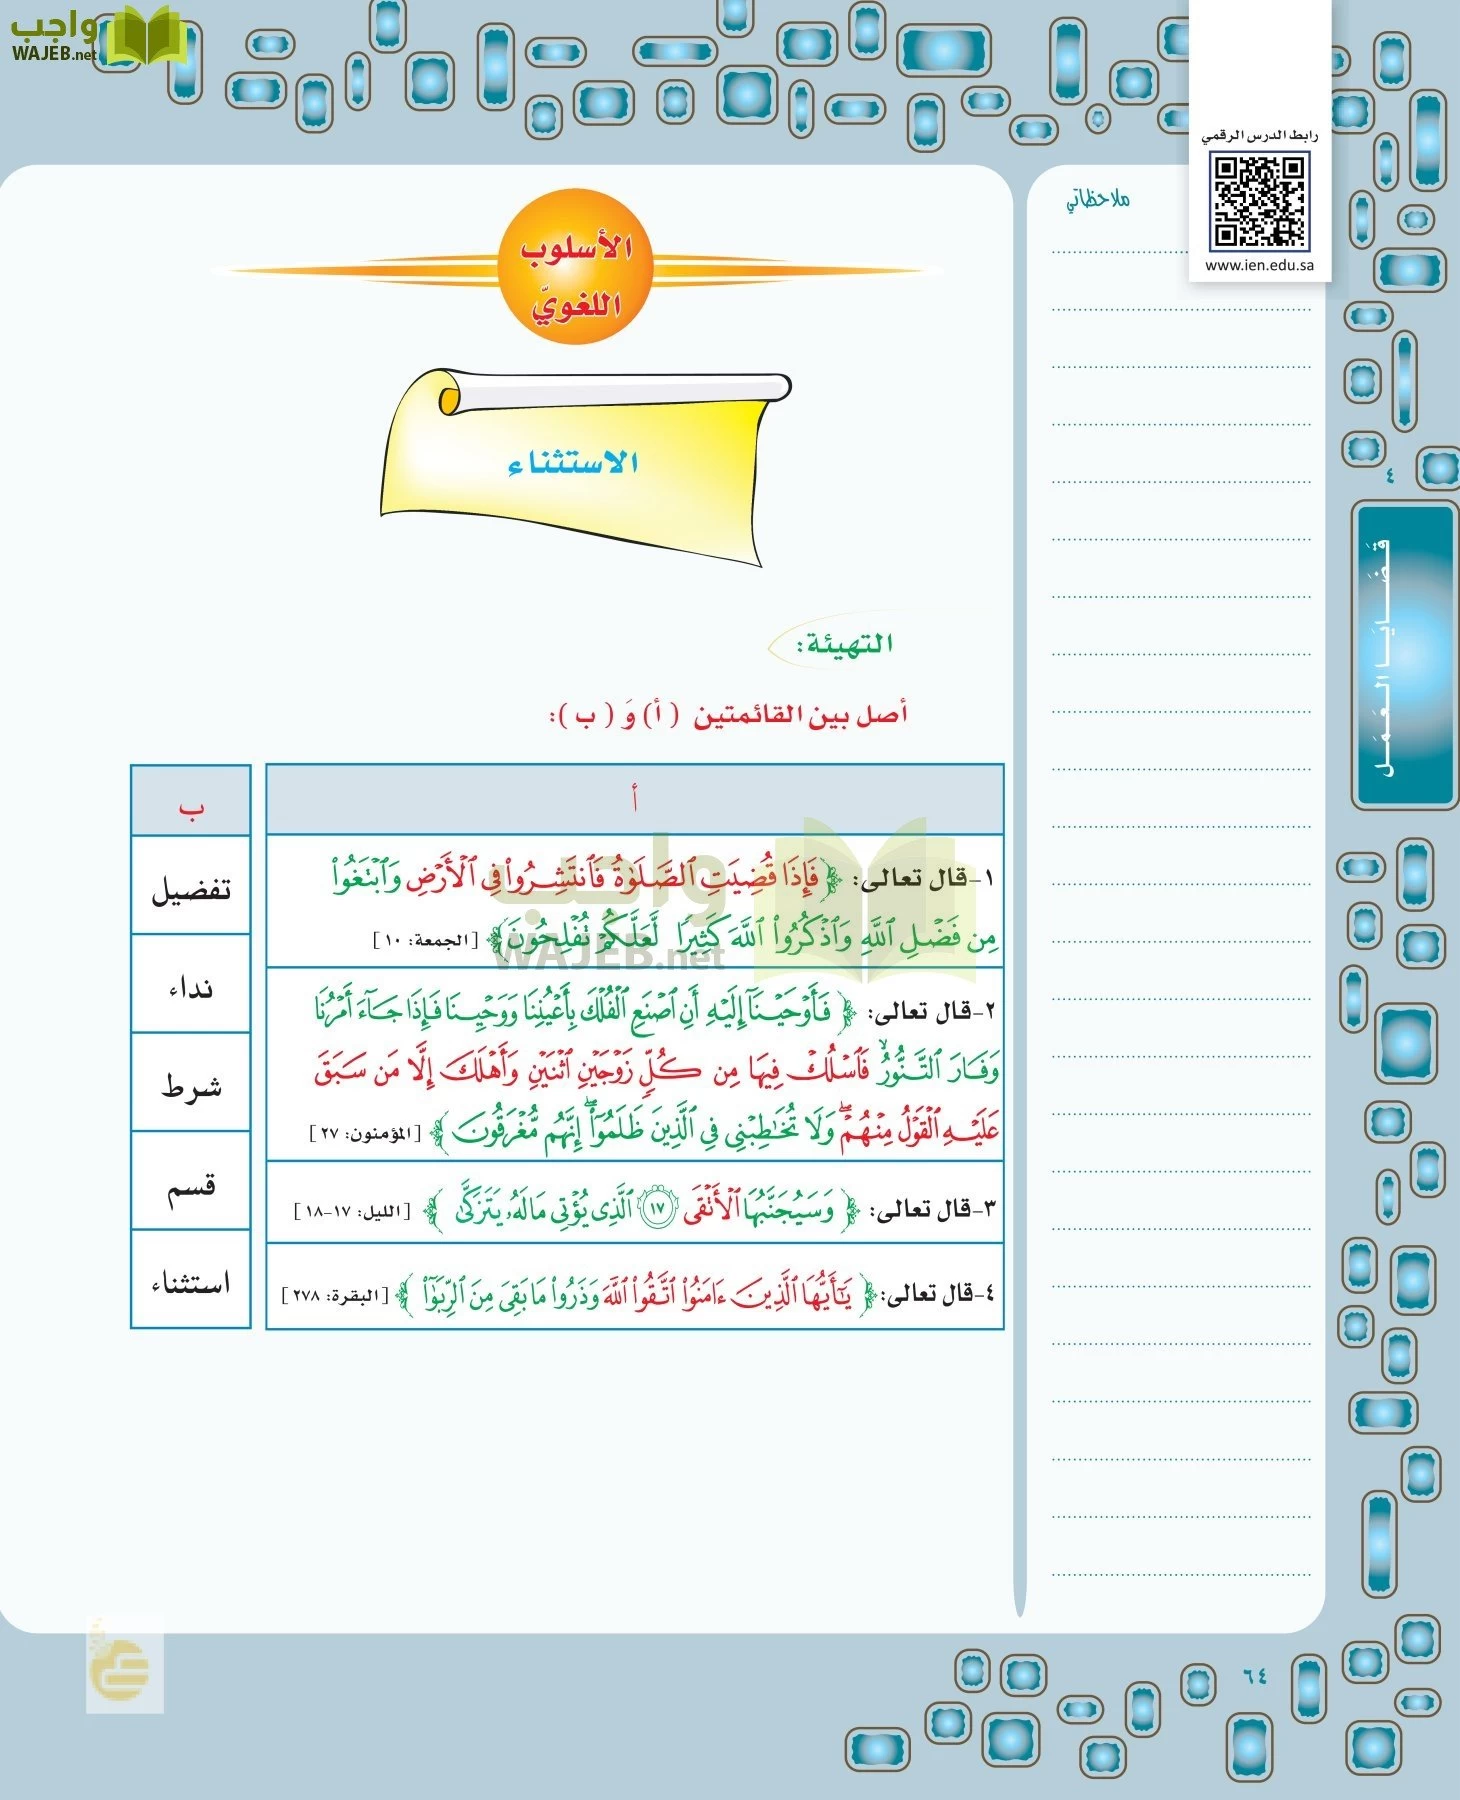 واجب
WAJEB.net
رابط الدرس الرقمي
www.ien.edu.sa
ملاحظاتي
الأسلوب
اللغويّ
الاستثناء
التهيئة:
أصل بين القائمتين (أ) وَ (ب):
أ
ب
١- قال تعالى: ﴿فَإِذَا قُضِيَتِ ٱلصَّلَوٰةُ فَٱنتَشِرُوا۟ فِى ٱلْأَرْضِ وَٱبْتَغُوا۟
مِن فَضْلِ ٱللَّهِ وَٱذْكُرُوا۟ ٱللَّهَ كَثِيرًا لَّعَلَّكُمْ تُفْلِحُونَ﴾ [الجمعة: ١٠]
٢- قال تعالى: ﴿فَأَوْحَيْنَآ إِلَيْهِ أَنِ ٱصْنَعِ ٱلْفُلْكَ بِأَعْيُنِنَا وَوَحْيِنَا فَإِذَا جَآءَ أَمْرُنَا
وَفَارَ ٱلتَّنُّورُ ۙ فَٱسْلُكْ فِيهَا مِن كُلٍّ زَوْجَيْنِ ٱثْنَيْنِ وَأَهْلَكَ إِلَّا مَن سَبَقَ
عَلَيْهِ ٱلْقَوْلُ مِنْهُمْ ۖ وَلَا تُخَـٰطِبْنِى فِى ٱلَّذِينَ ظَلَمُوٓا۟ ۖ إِنَّهُم مُّغْرَقُونَ﴾ [المؤمنون: ٢٧]
٣- قال تعالى: ﴿وَسَيُجَنَّبُهَا ٱلْأَتْقَى ١٧ ٱلَّذِى يُؤْتِى مَالَهُۥ يَتَزَكَّىٰ﴾ [الليل: ١٧-١٨]
٤- قال تعالى: ﴿يَـٰٓأَيُّهَا ٱلَّذِينَ ءَامَنُوا۟ ٱتَّقُوا۟ ٱللَّهَ وَذَرُوا۟ مَا بَقِىَ مِنَ ٱلرِّبَوٰٓا۟﴾ [البقرة: ٢٧٨]
تفضيل
نداء
شرط
قسم
استثناء
واجب
WAJEB.net
٤
قَضَايَا العَمَل
٦٤